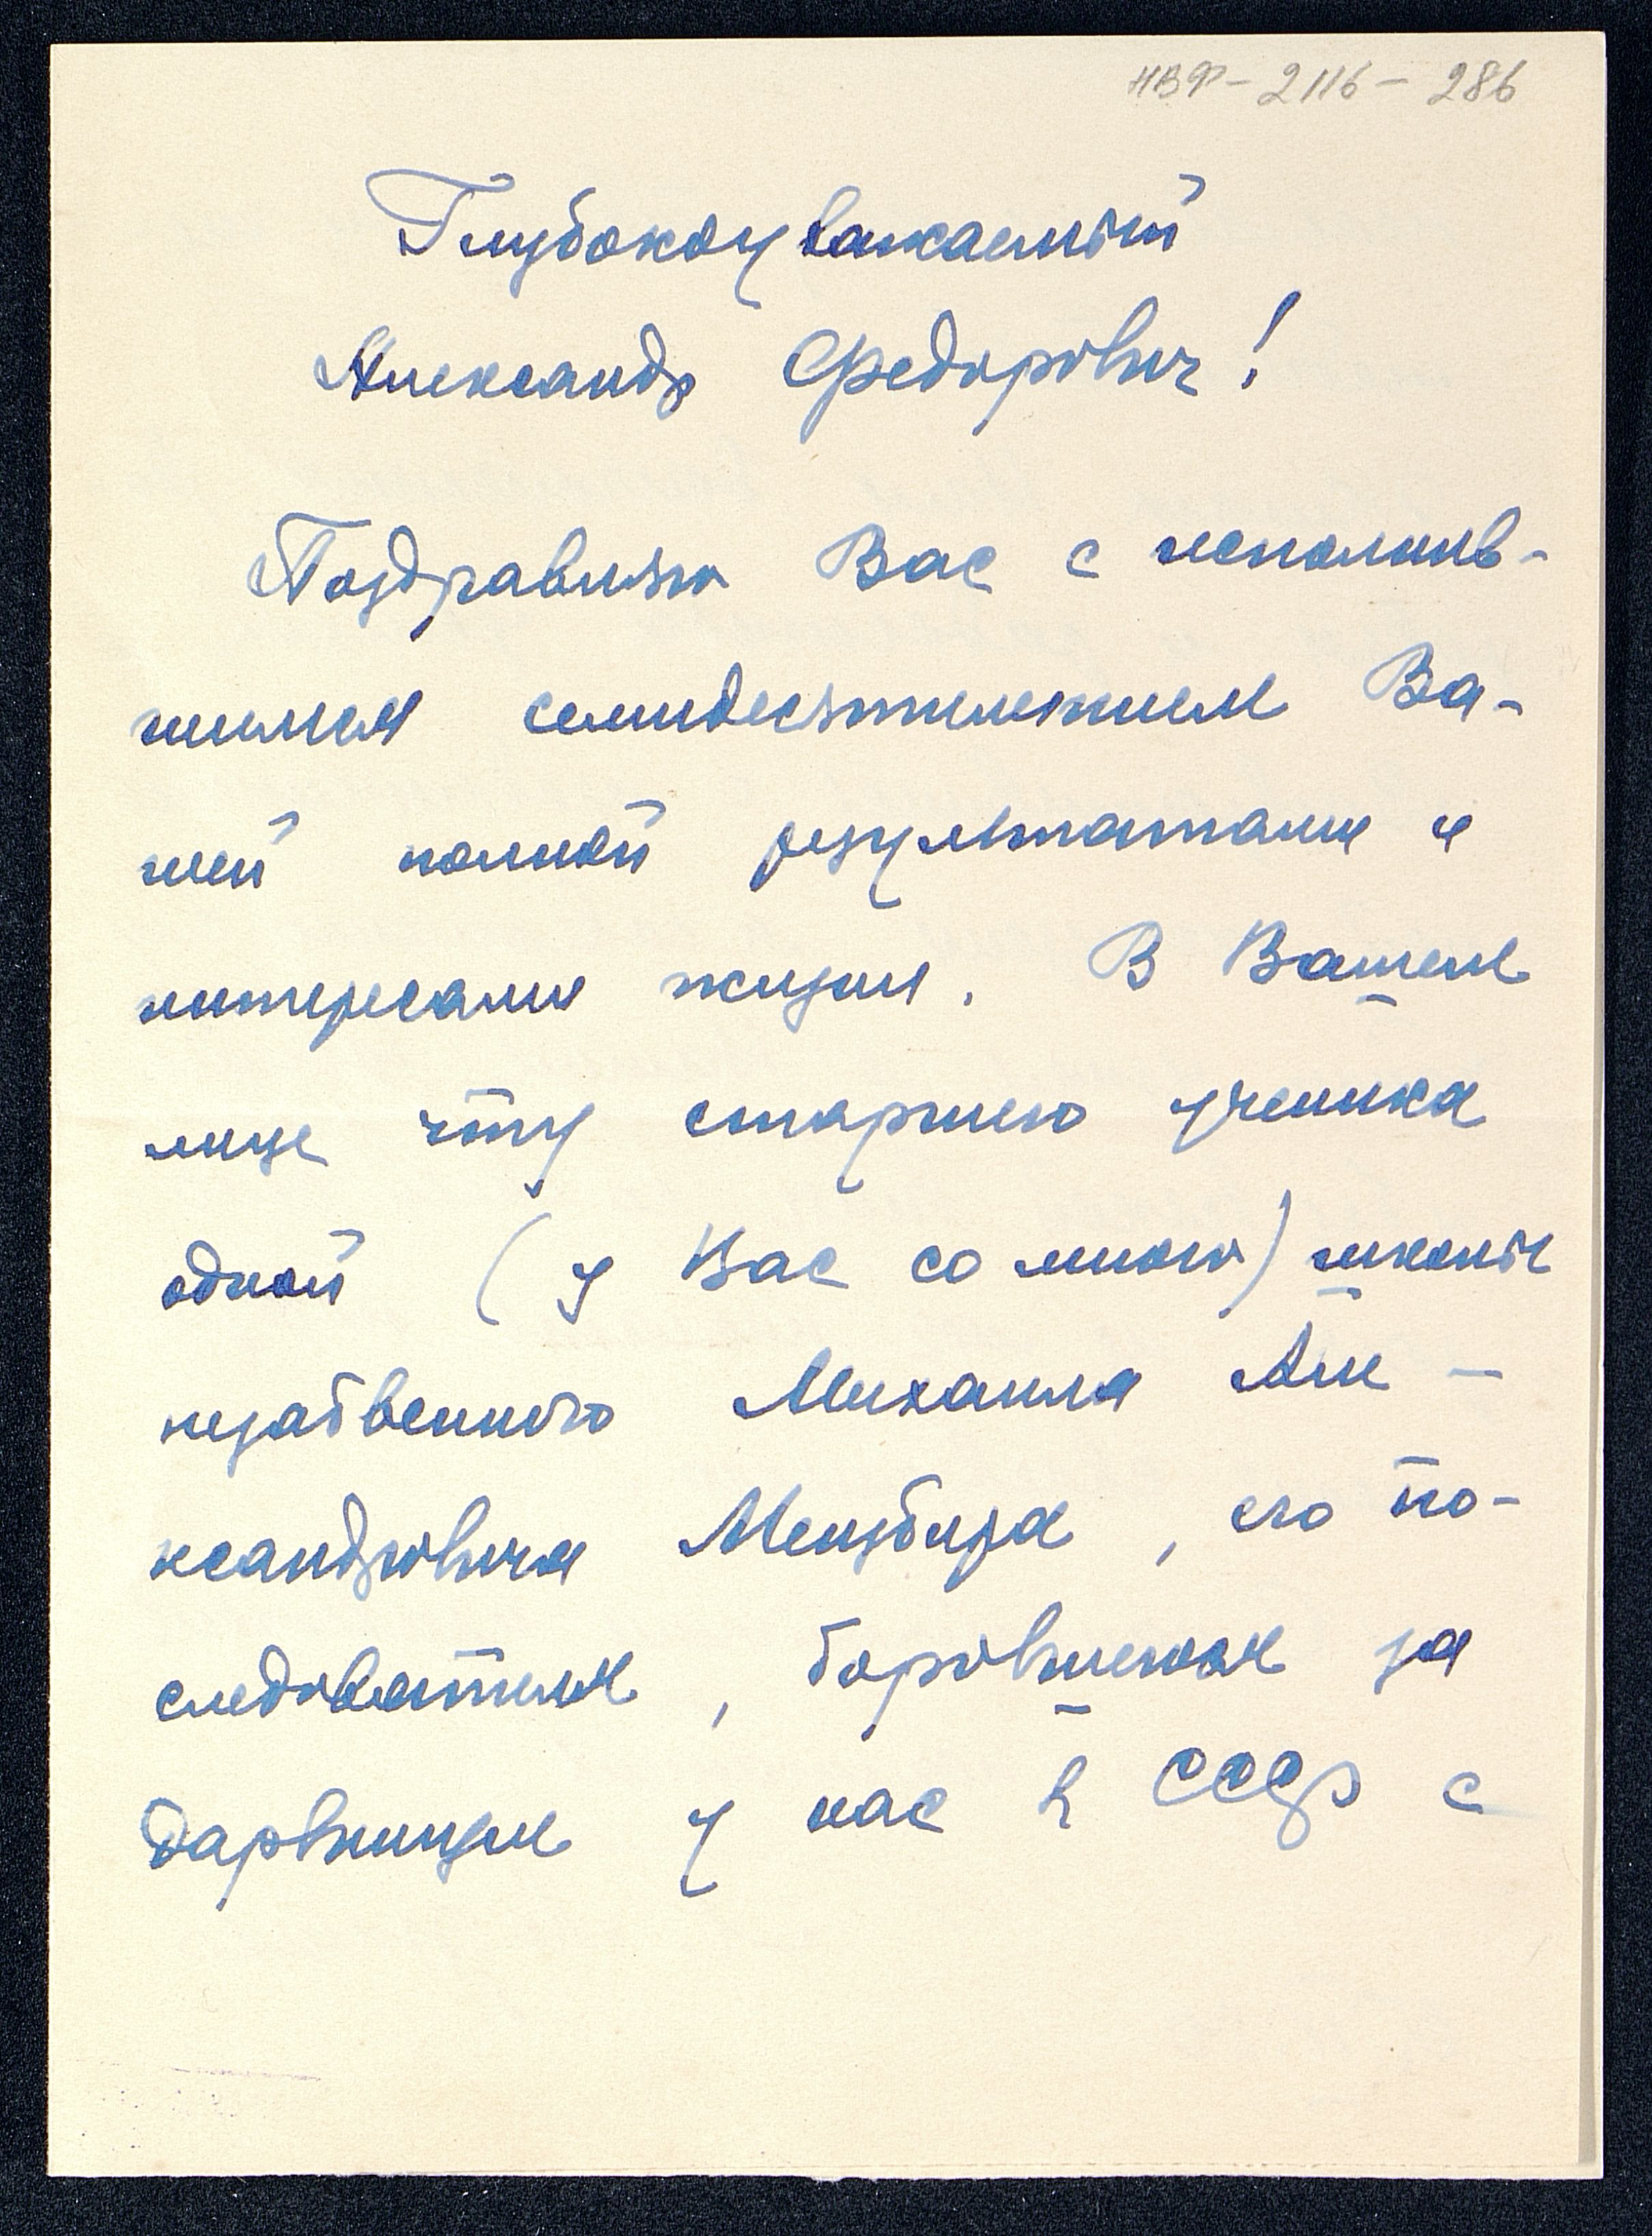 НВФ-2116-286
Глубокоуважаемый
Александр Федорович!
Поздравляю Вас с исполнив-
шимся семидесятилетием Ва-
шей полной результатами и
интересами жизни. В Вашем
лице чту старшего ученика
одной (у Вас со мною) школы
незабвенного Михаила Але-
ксандровича Мензбира, его по-
следователя, боровшегося за
дарвинизм у нас в СССР с